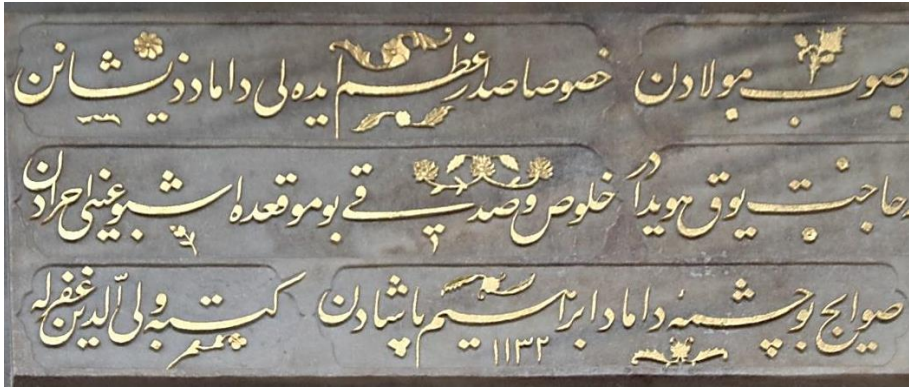 صوب مولادن خصوصا صدر اعظم ایده لی داماد ذیشانن
حاجت یوق هویدادر خلوص و صدقی بو موقعده اشبو عینی اجرادن
صو ایچ بو چشمۀ داماد ابراهیم پاشادن ١١٣٢ کتبه ولی الدین غفر له